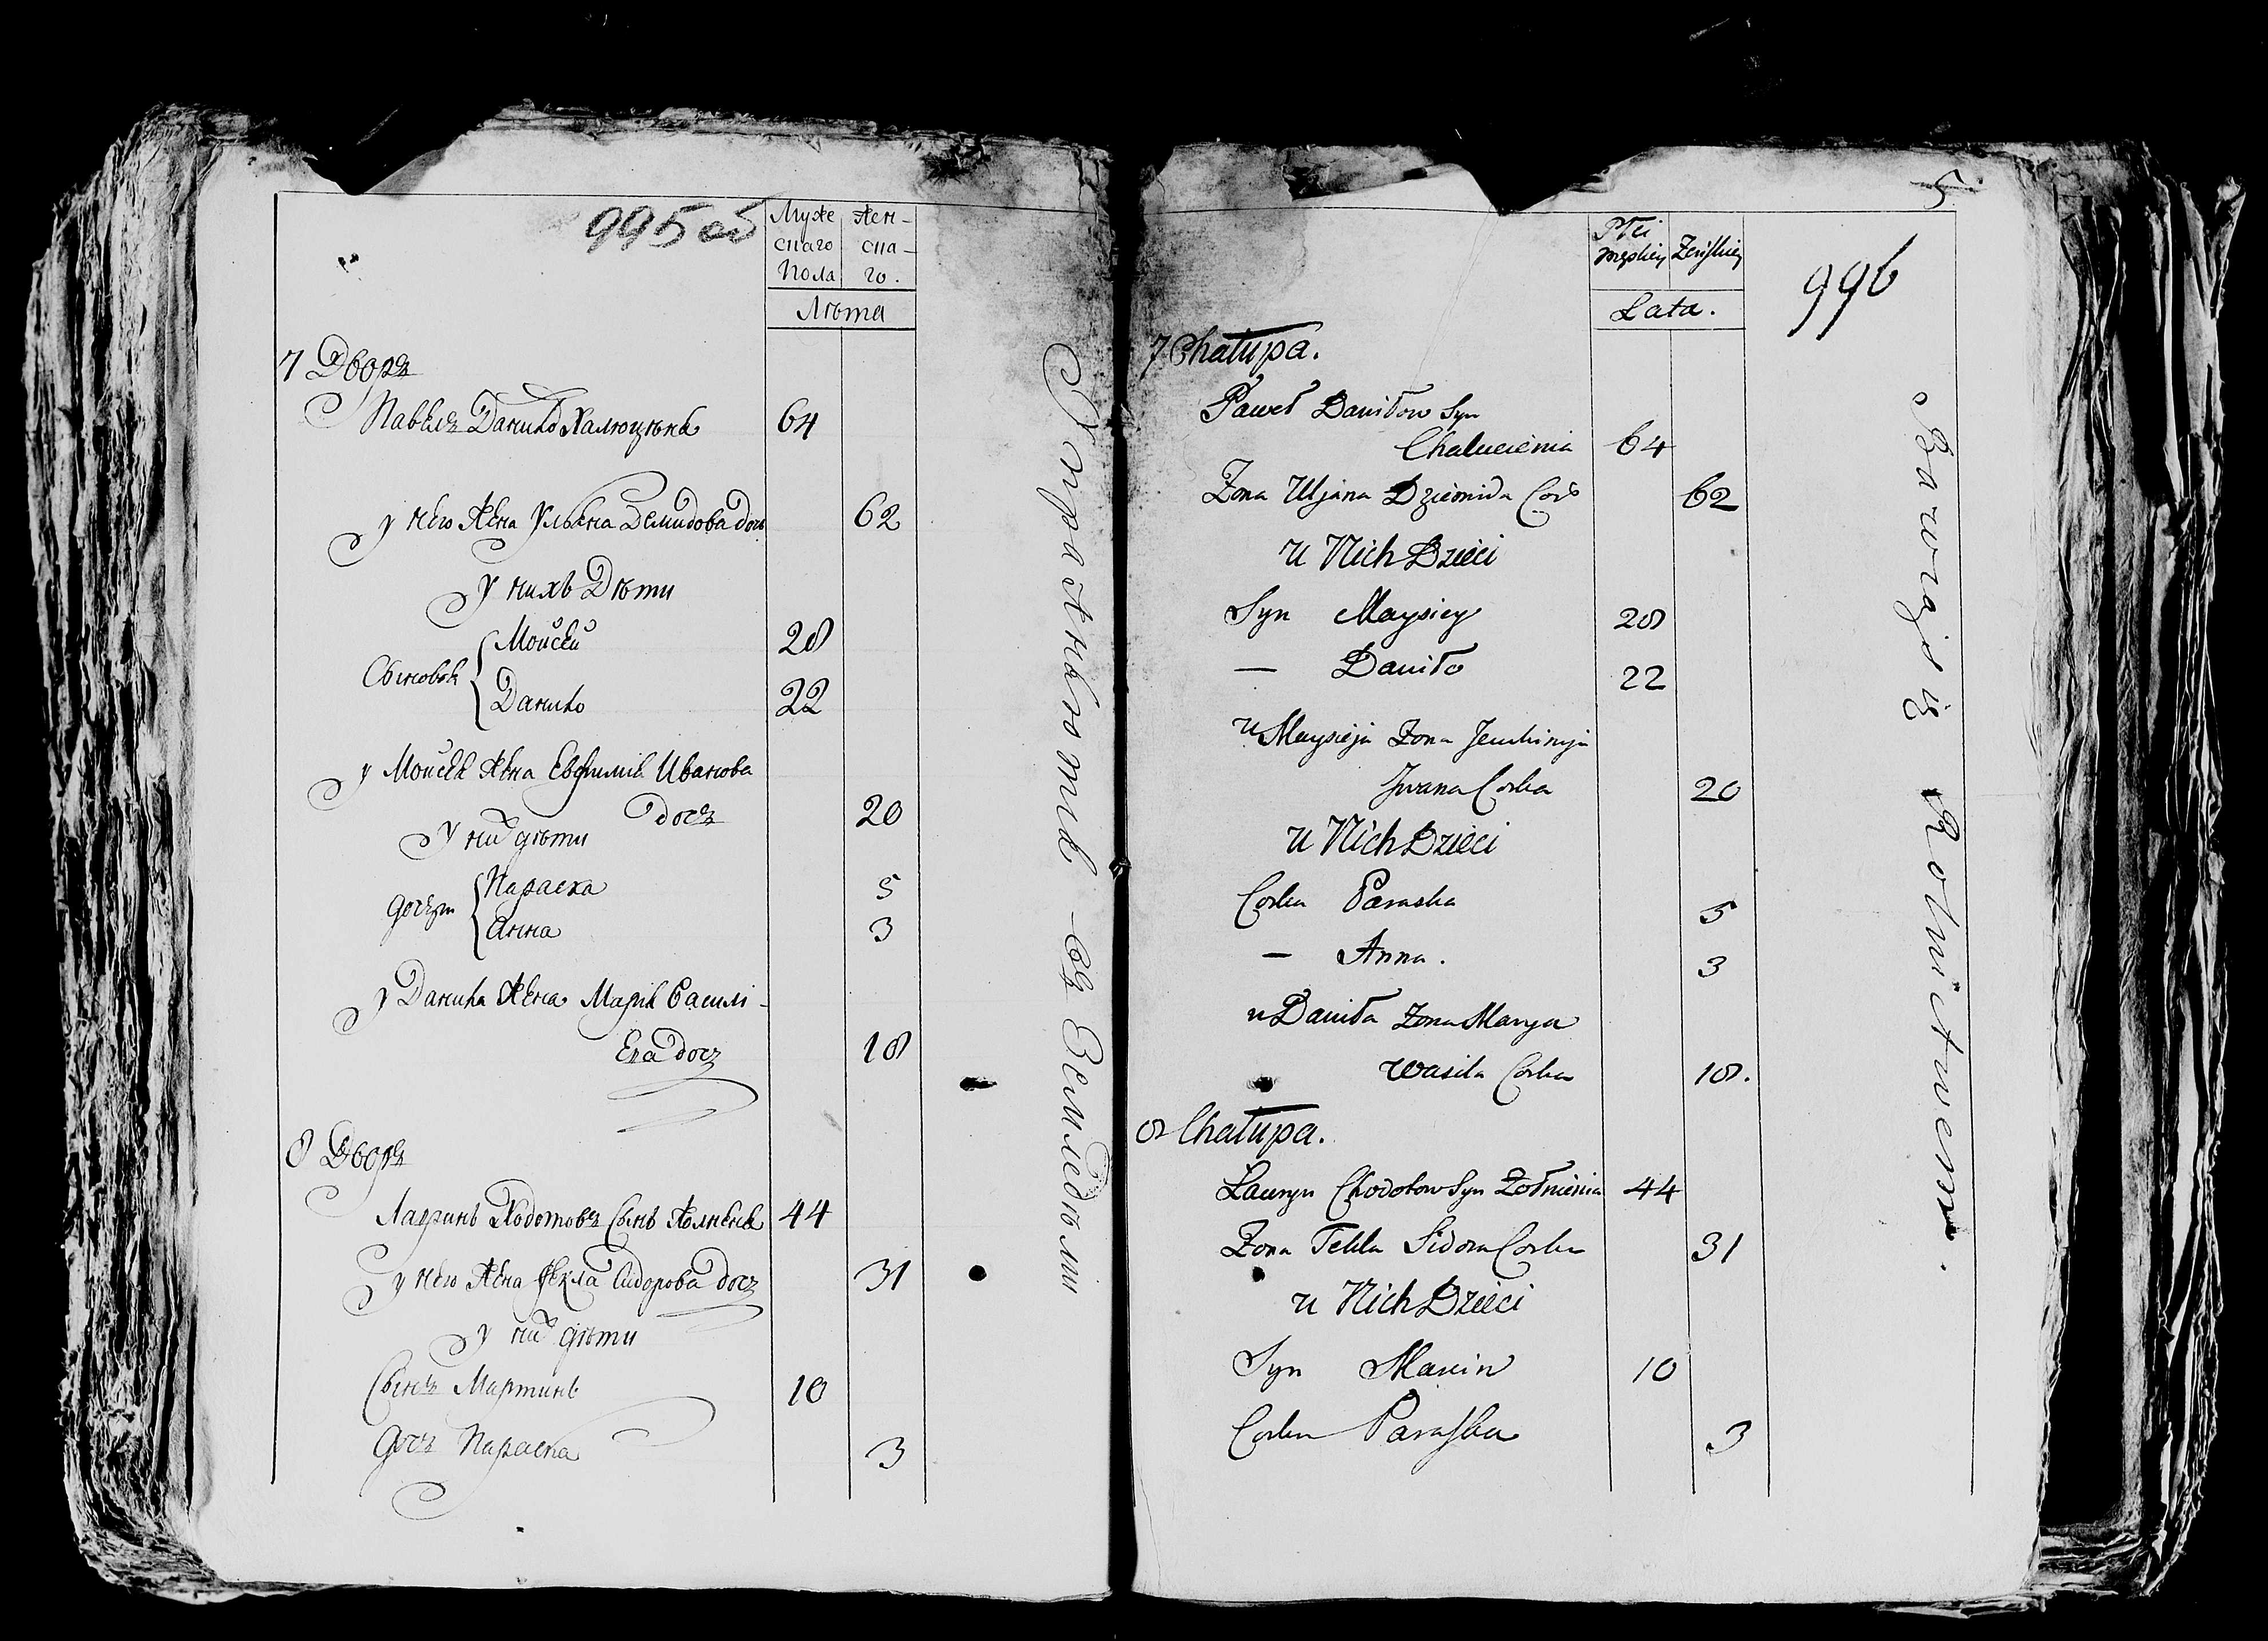 995 об
Муже
скаго
Пола
Жен-
ска-
го.
Лѣта
7 Дворъ
Павелъ Данило Халюцѣнка 64
у него Жена Ульяна Демидова доч 62
у нихъ Дѣти
Сыновья
Моисей 28
Данило 22
у Моисея Жена Евфимія Иванова
дочъ 20
у них дѣти
дочери
Параска 5
Анна 3
у Данила Жена Марія Васили-
ева дочъ 18
8 Дворъ
Лавринъ Ходотовъ Сынъ Жолнѣнка 44
у него Жена Фекла Сидорова дочъ 31
у них дѣти
Сынъ Мартинъ 10
дочъ Параска 3
Упражняютца въ Земледѣлии
5
Płci
męskiey
Zeńskiey
996
Lata.
7 Chałupa.
Paweł Daniłow Syn
Chalucienia 64
Zona Uljana Dziemida Cor 62
u Nich Dzieci
Syn Maysiey 28
— Daniło 22
u Maysieja Zona Jeuchimja
Jwana Corka 20
u Nich Dzieci
Corka Paraska 5
— Anna. 3
u Daniła Zona Marya
Wasila Corka 18.
8 Chałupa.
Lauryn Chodotow Syn Zołnienia 44
Zona Tekla Sidora Corka 31
u Nich Dzieci
Syn Marcin 10
Corka Paraska 3
Bawią się Rolnictwem.